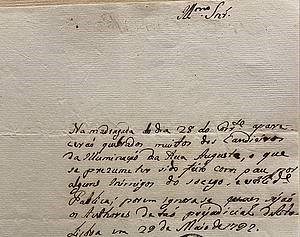 Illmo Snr.
Na madrugada do dia 28 do Corrte appare
cerão quebrados muitos dos Candieiros
da Illuminação da Rua Augusta, o que
se prezume ter sido feito com pau por
algum inimigo do socego, e
Publica, porem ignora-se quaes sejão
os Authores de tão prejudicial
Lisboa em 29 de Maio de